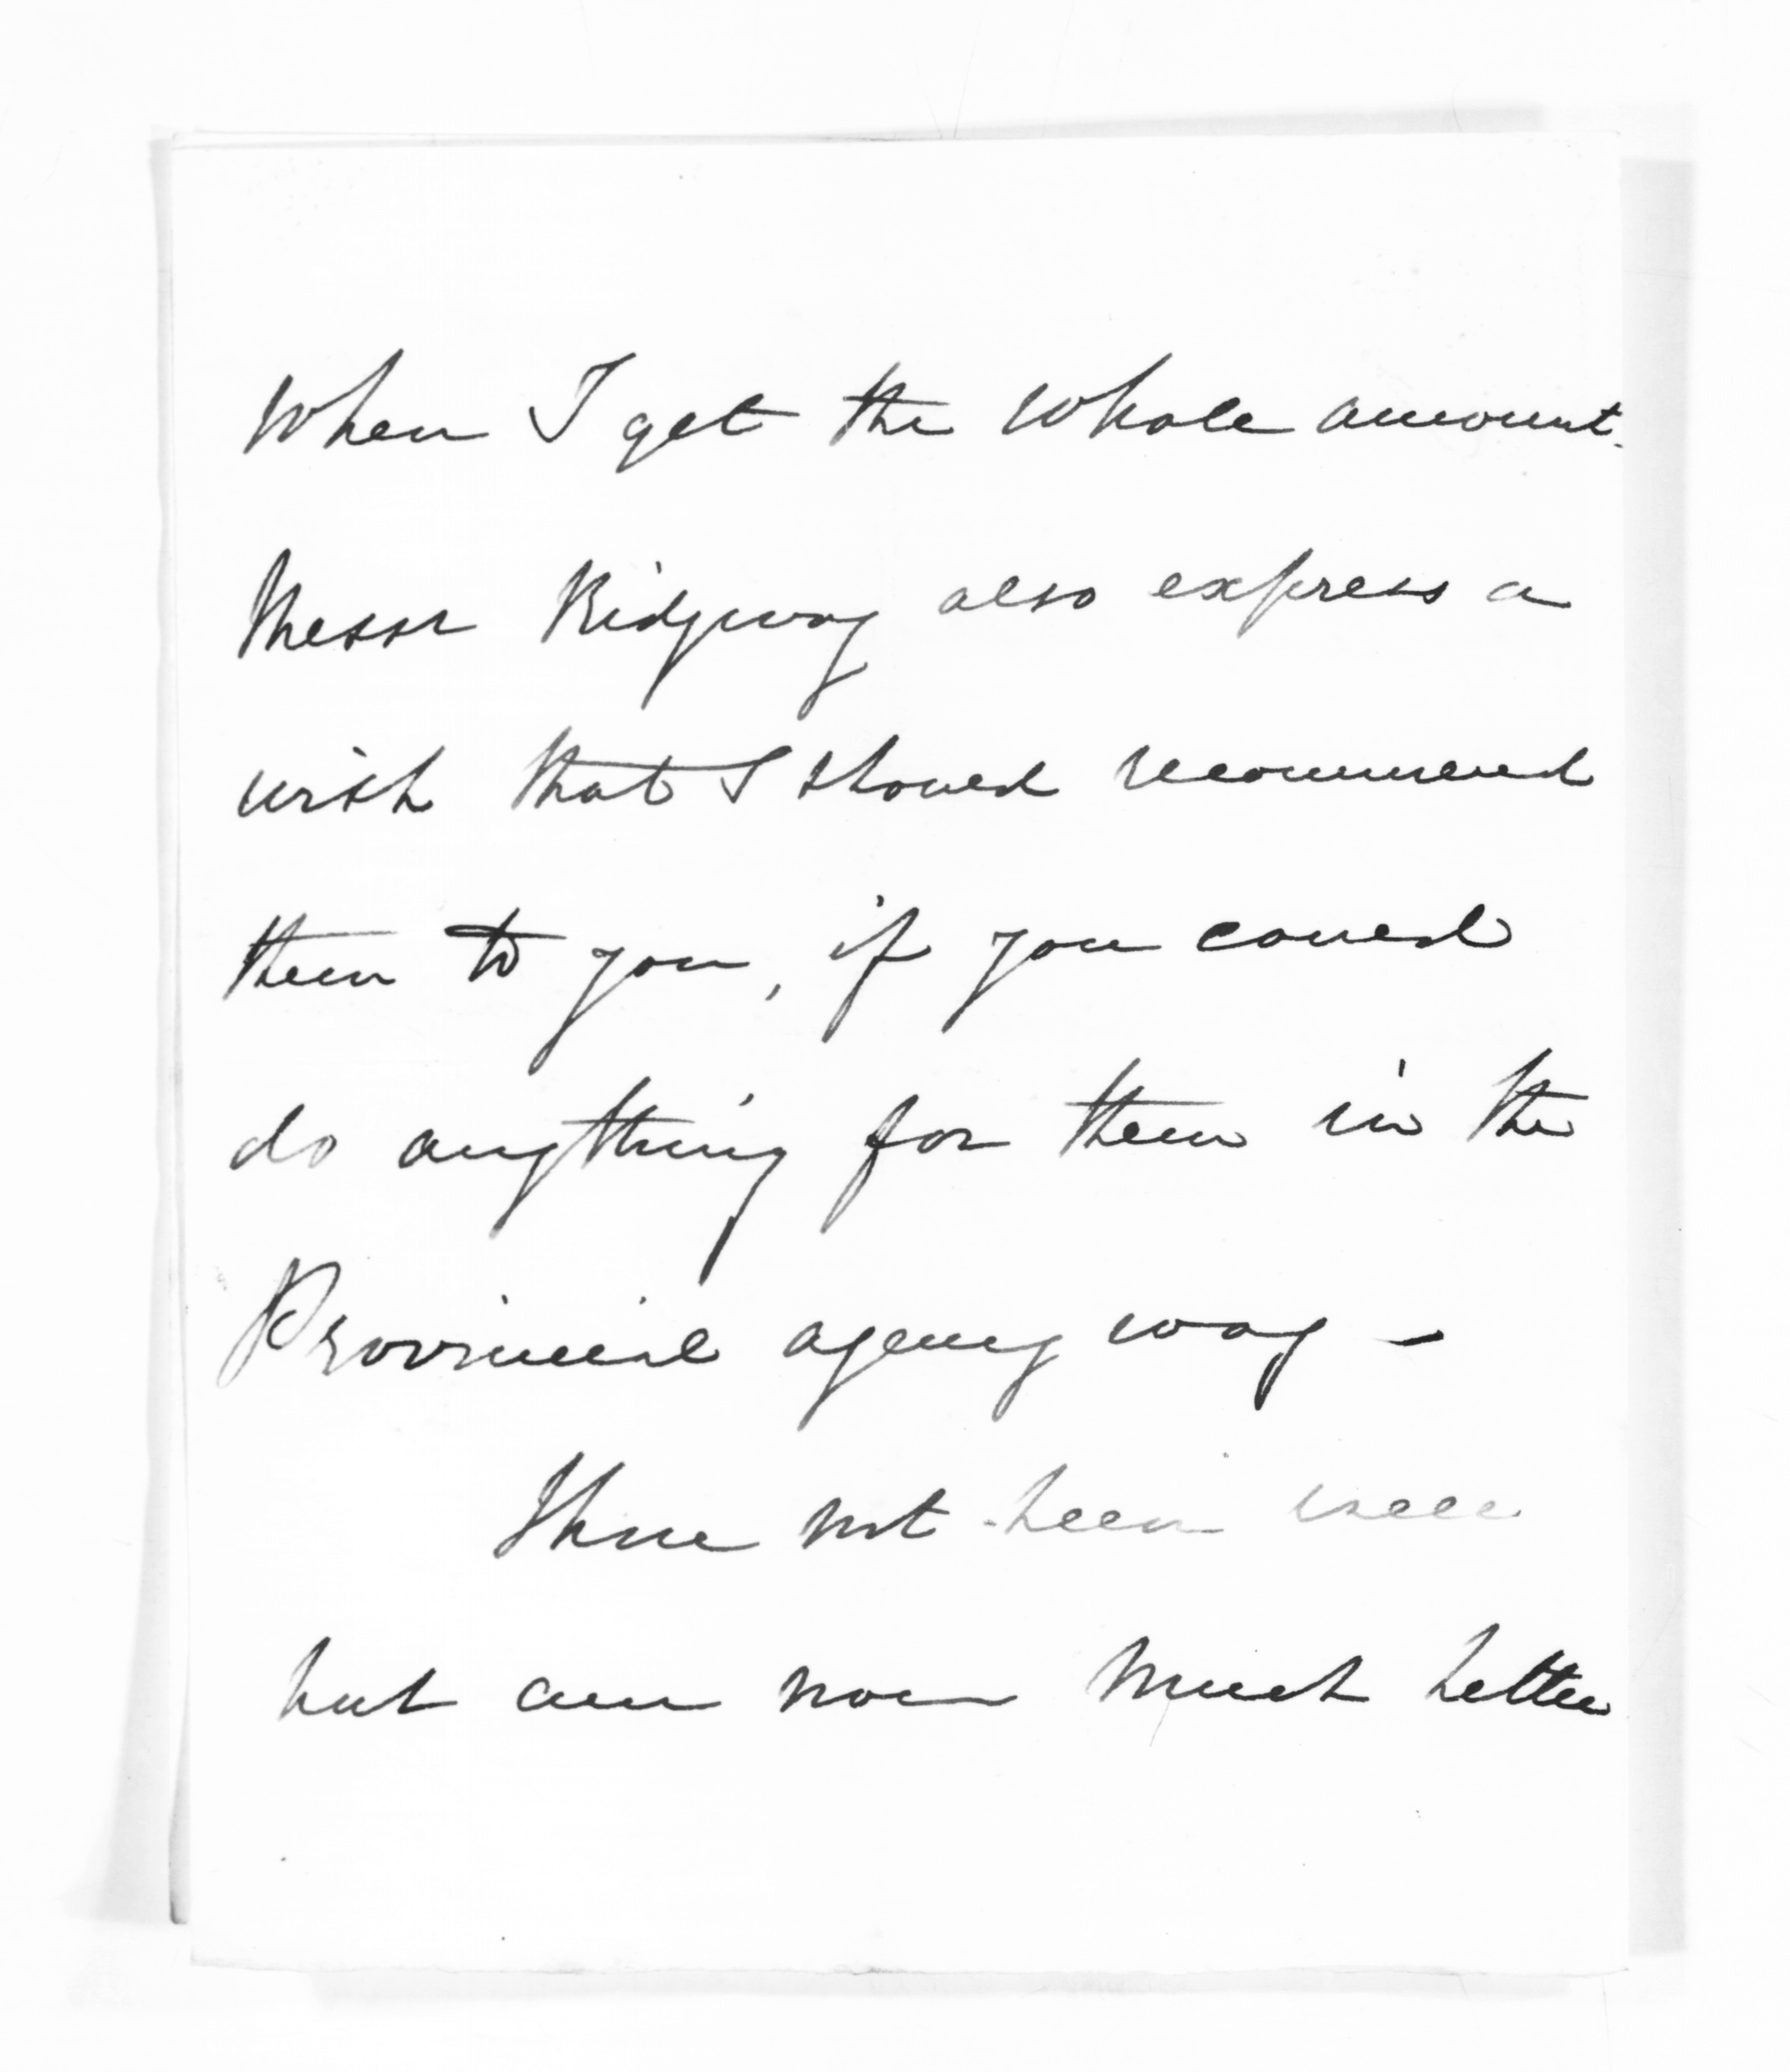 When I get the whole amount.
Messr Ridgway also express a
wish that I should recommend
them to you, if you could
do anything for them in the
Provincial agency way -
I have not been well
but am now much better